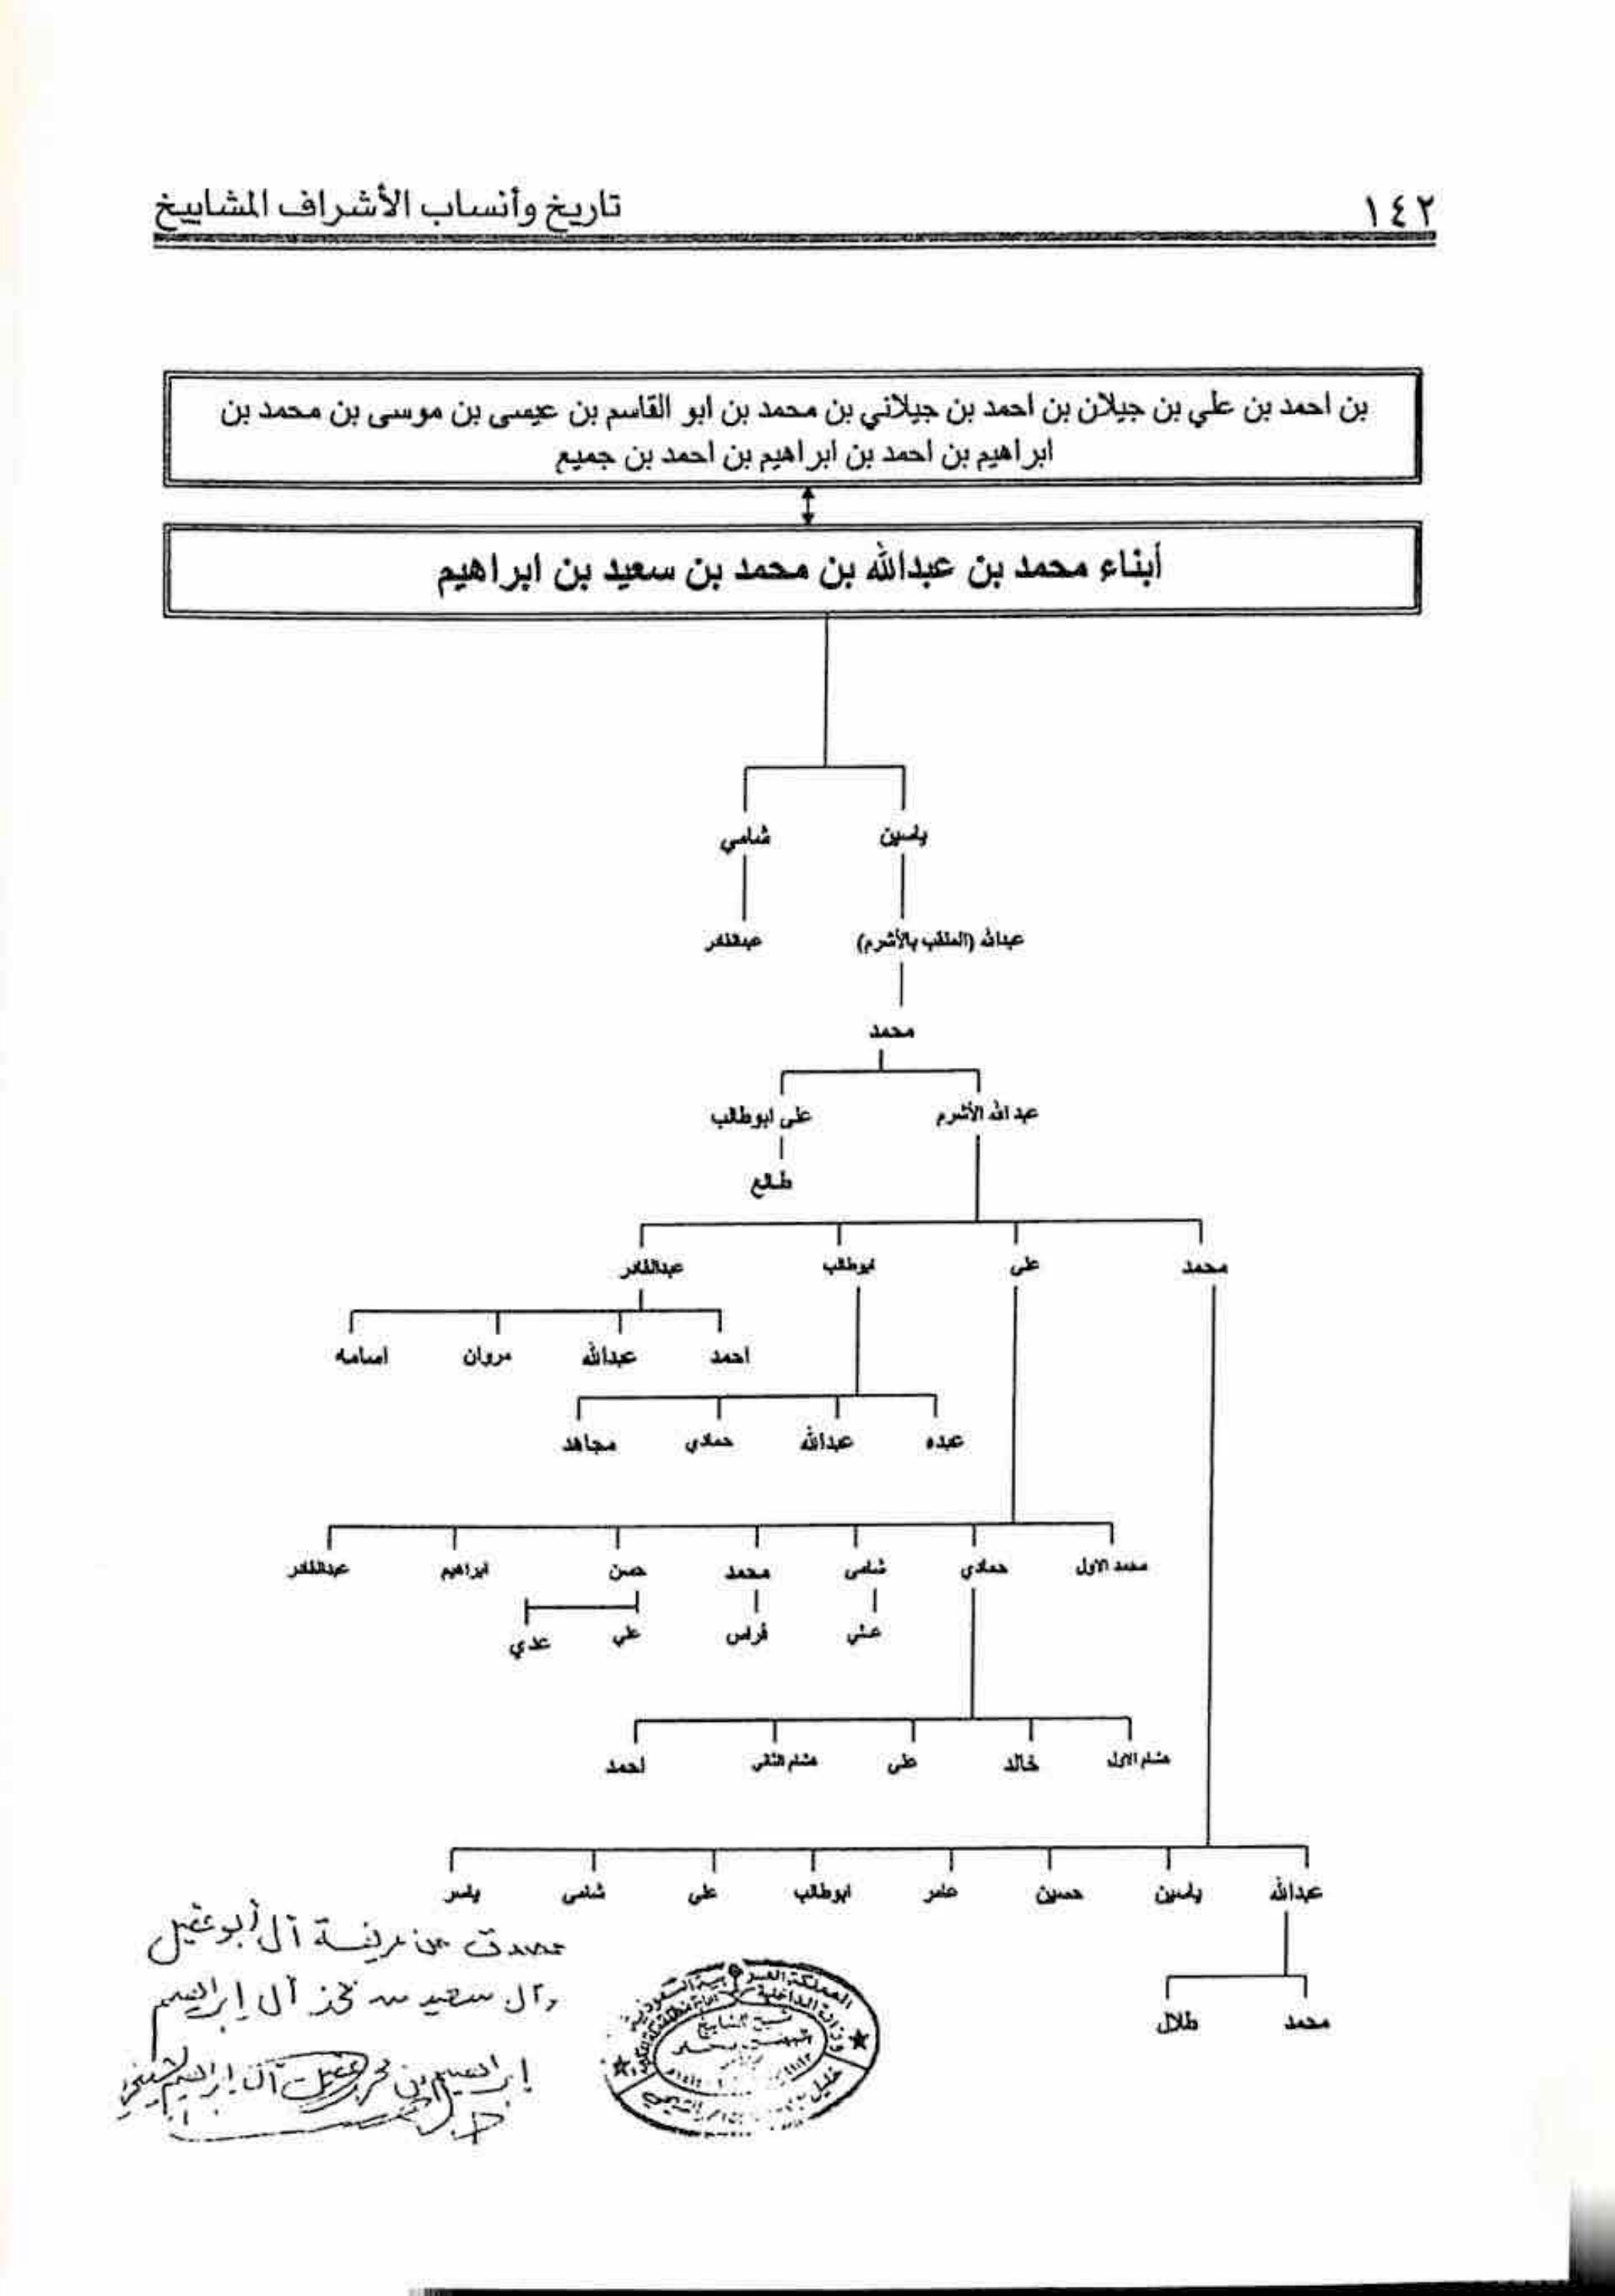 ١٤٢ تاريخ وأنساب الأشراف المشاييخ
بن احمد بن علي بن جيلان بن احمد بن جيلاني بن محمد بن ابو القاسم بن عيسى بن موسى بن محمد بن
ابراهيم بن احمد بن ابراهيم بن احمد بن جميع
أبناء محمد بن عبدالله بن محمد بن سعيد بن ابراهيم
ياسين شامي
عبدالله (الملقب بالأشرم) عبدالقادر
محمد
عبد الله الأشرم على ابوطالب
طالع
محمد على ابوطالب عبدالقادر
احمد عبدالله مروان اسامه
عبده عبدالله حمادي مجاهد
محمد الاول حمادي شامى محمد حسن ابراهيم عبدالقادر
علي فراس علي عدي
هشام الاول خالد على هشام الثانى احمد
عبدالله ياسين حسين عامر ابوطالب على شامى ياسر
محمد طلال
مصدق من عريفة آل أبو عقيل
وآل سعيد من فخذ آل إبراهيم
إبراهيم بن
المملكة العربية السعودية
وزارة الداخلية
شيخ المشاييخ
خليل